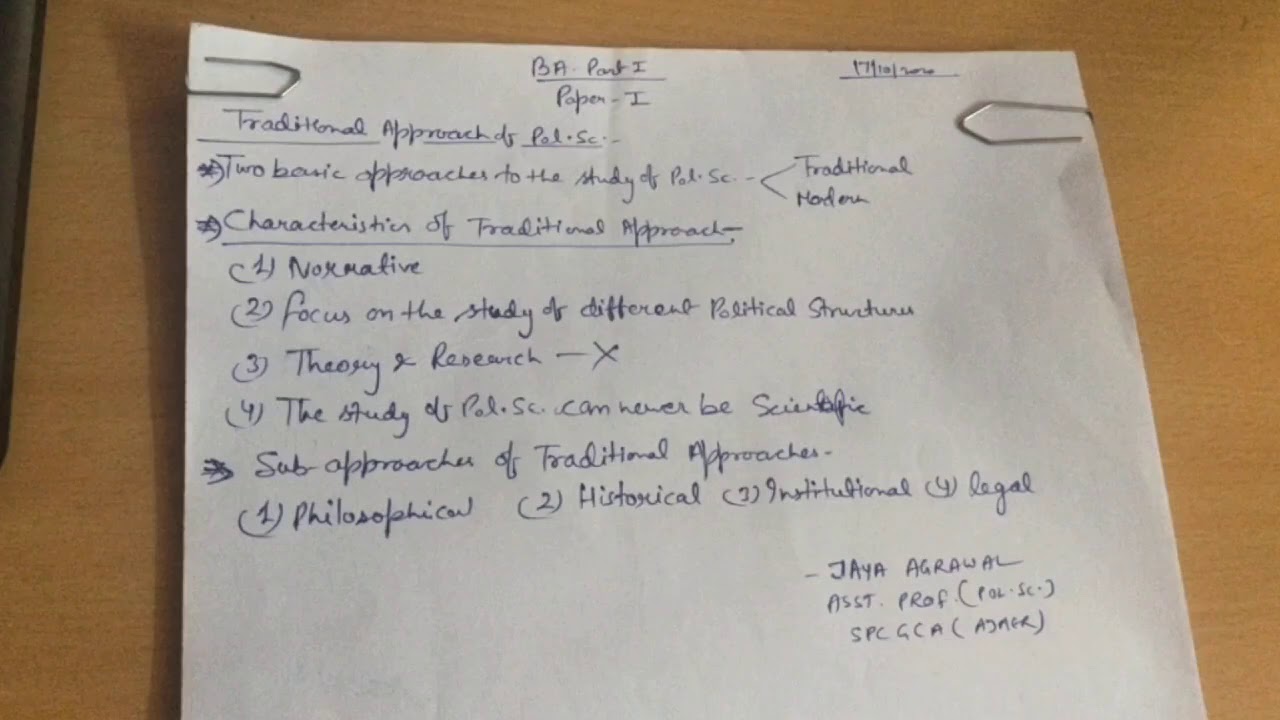 BA. Part I
17/10/2020
Paper - I
Traditional Approach of Pol.Sc.-
Two basic approaches to the study of Pol.Sc. - Traditional
Modern
Characteristics of Traditional Approach-
(1) Normative
(2) Focus on the study of different Political Structures
(3) Theory & Research — X
(4) The study of Pol.Sc. can never be Scientific
Sub approaches of Traditional Approaches-
(1) Philosophical (2) Historical (3) Institutional (4) legal
- JAYA AGRAWAL
ASST. PROF. (POL.SC.)
SPC GCA (AJMER)